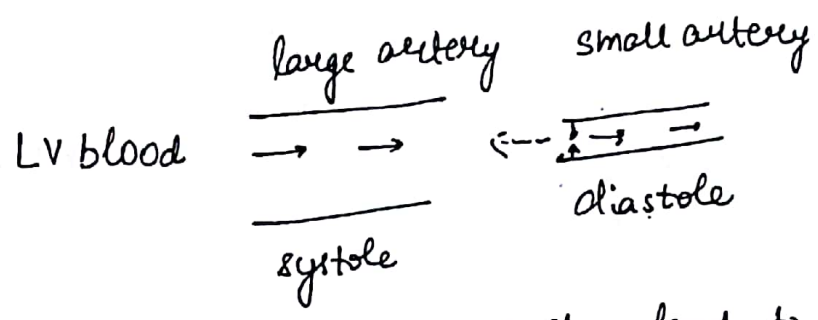 large artery small artery
LV blood
diastole
systole